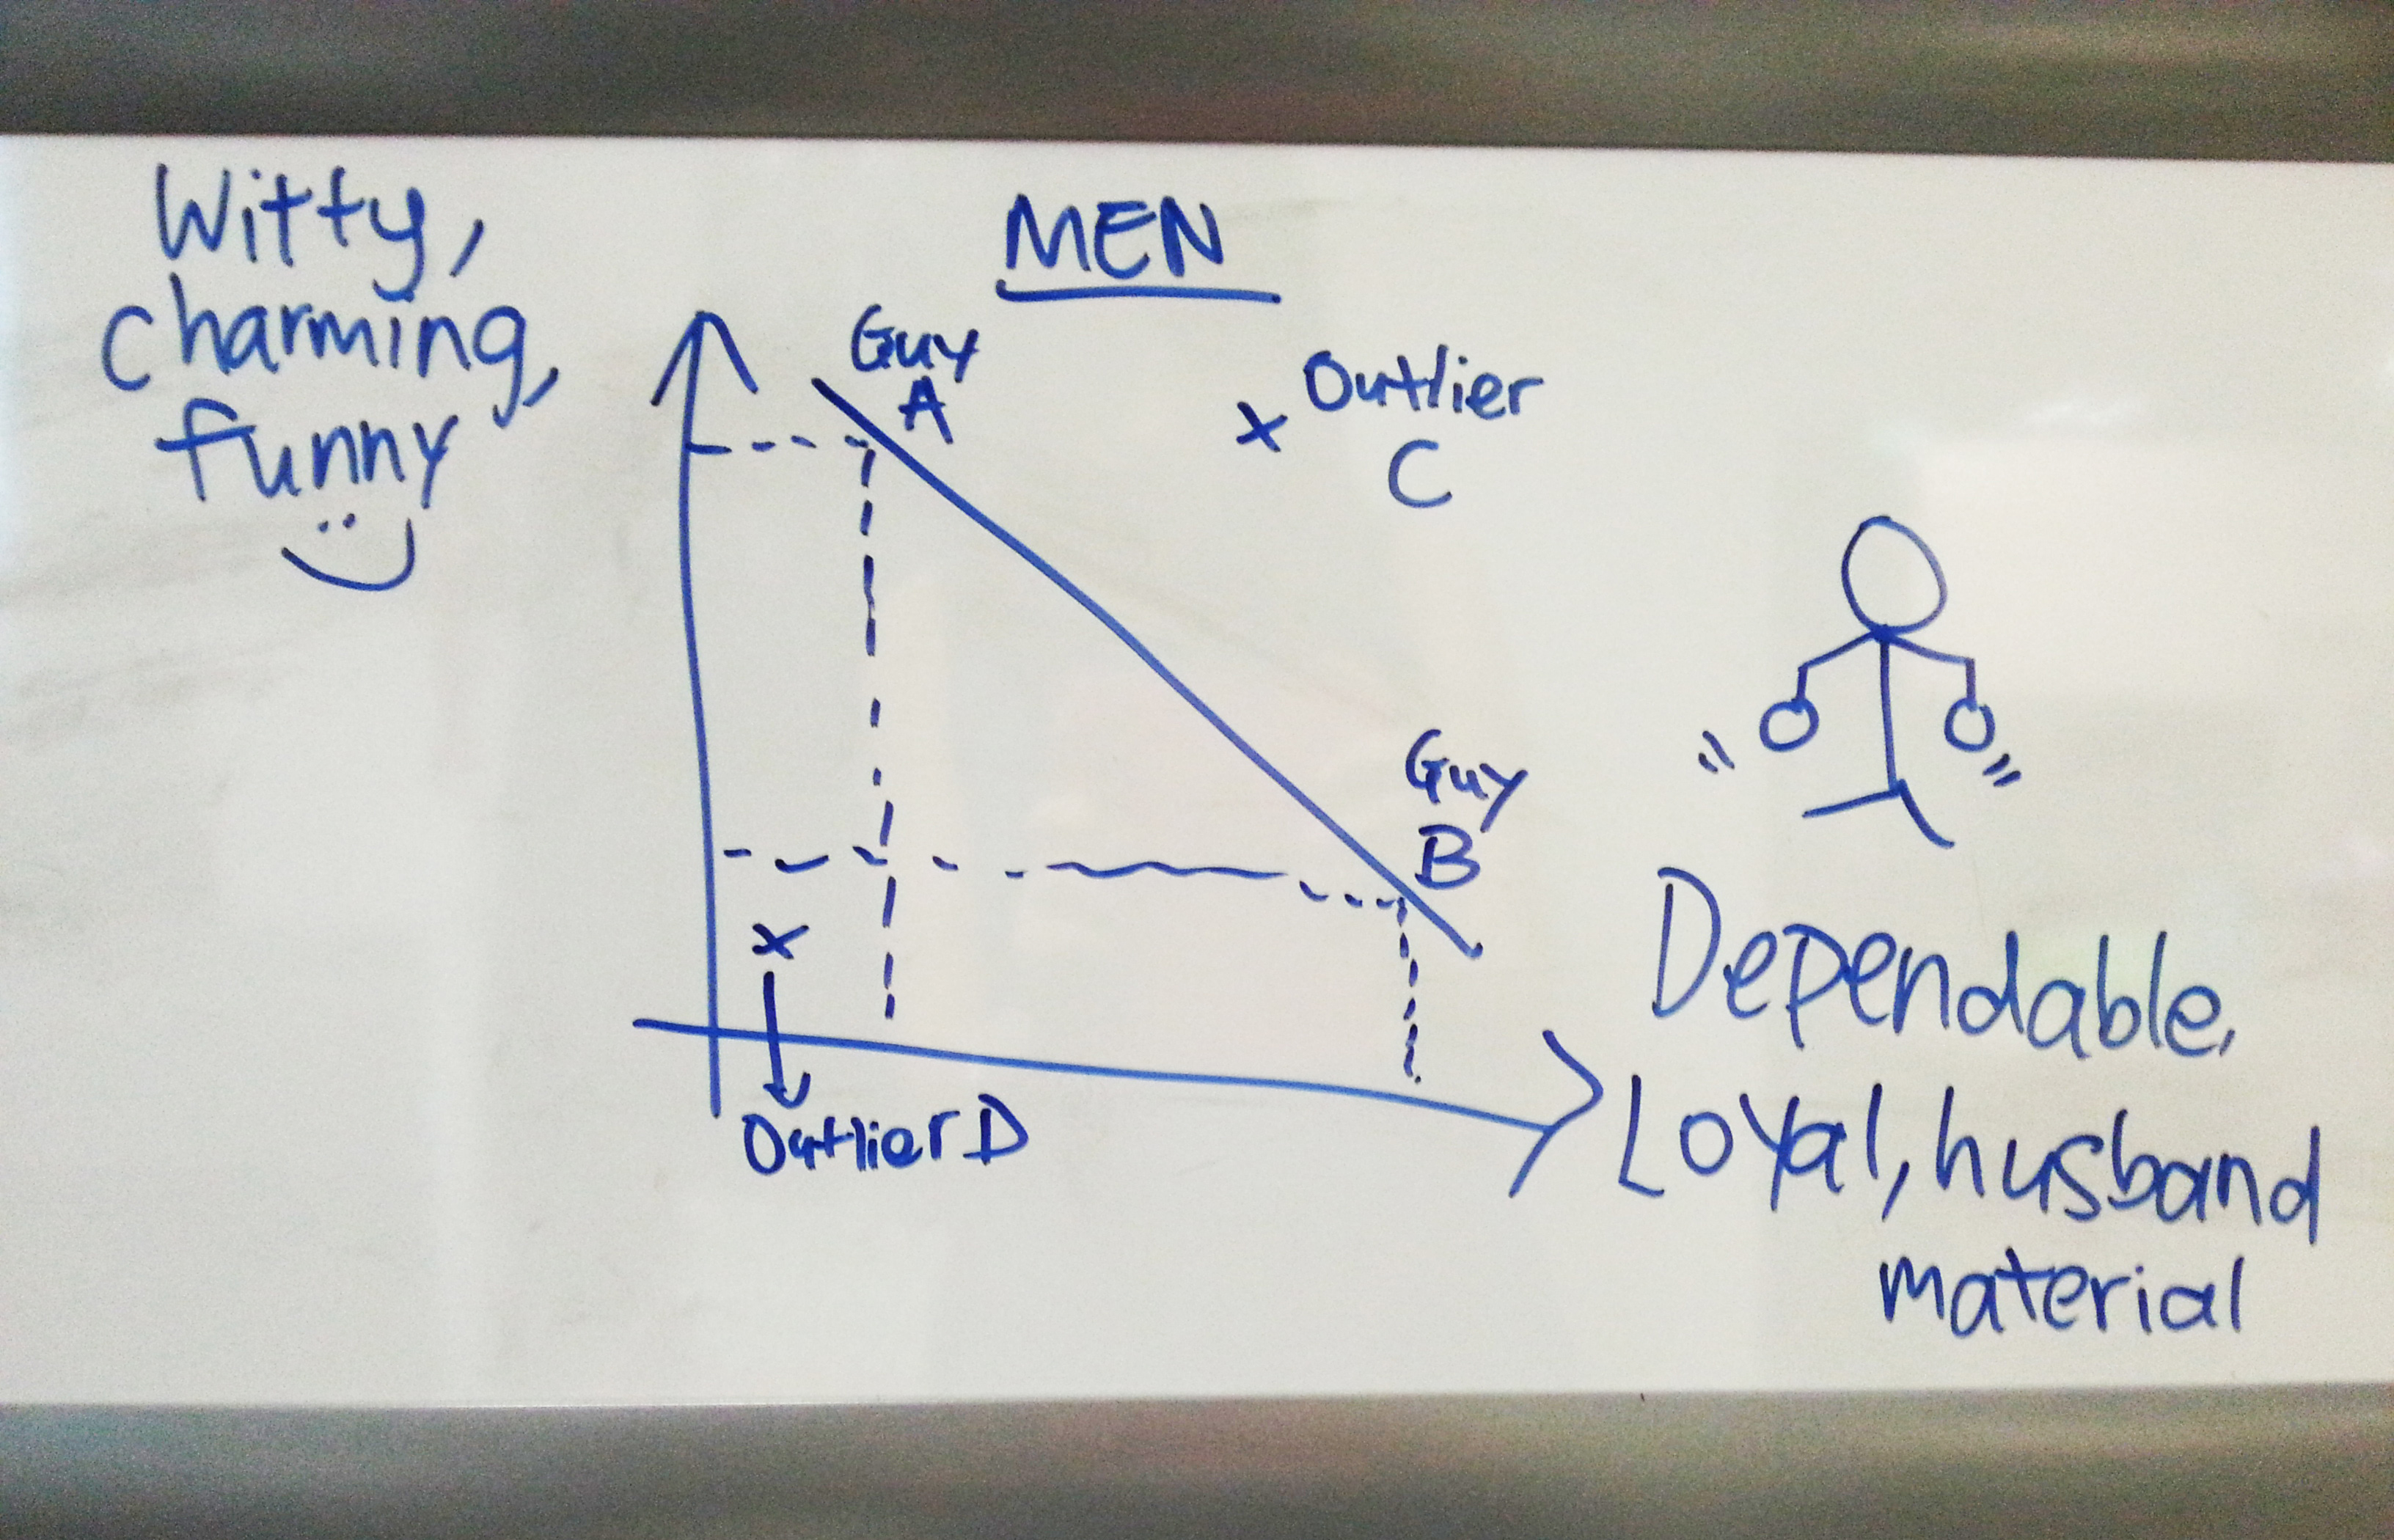 Witty,
charming,
funny
MEN
Guy
A
Outlier
C
Guy
B
Outlier D
Dependable,
Loyal, husband
material